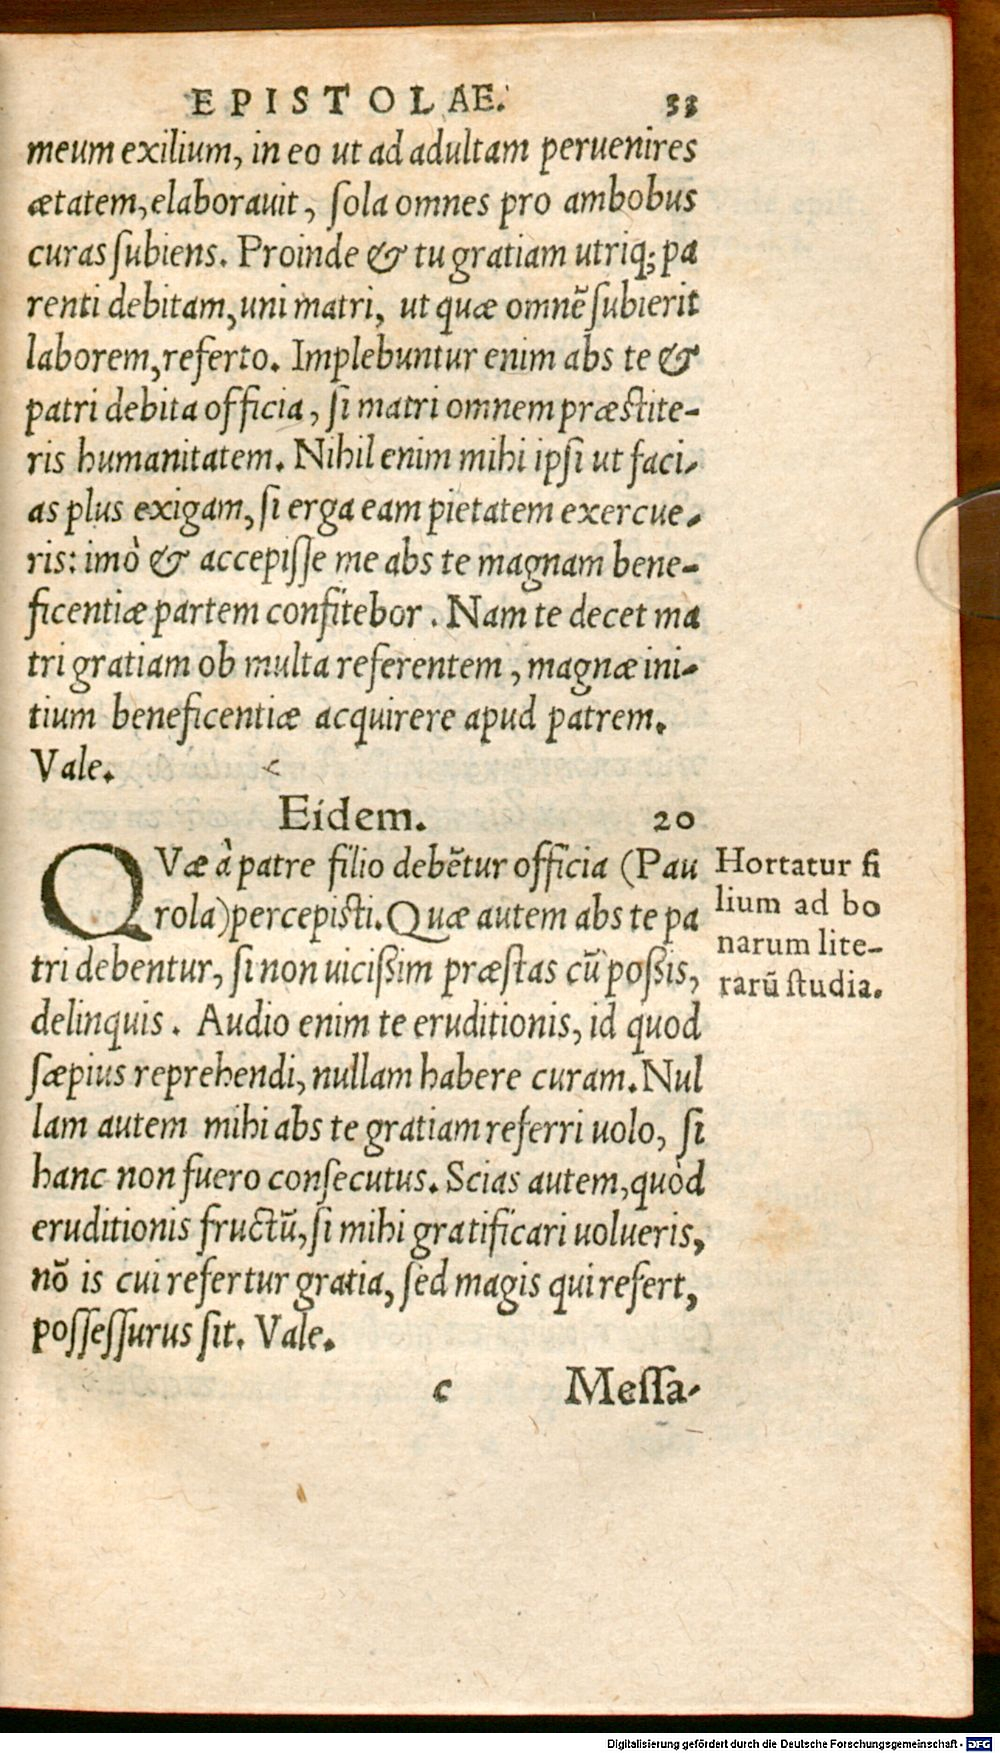 EPISTOLAE. 33
meum exilium, in eo ut ad adultam peruenires
ætatem, elaborauit, ſola omnes pro ambobus
curas ſubiens. Proinde & tu gratiam utriq; pa
renti debitam, uni matri, ut quæ omnẽ ſubierit
laborem, referto. Implebuntur enim abs te &
patri debita officia, ſi matri omnem præſtite-
ris humanitatem. Nihil enim mihi ipſi ut faci-
as plus exigam, ſi erga eam pietatem exercue-
ris: imò & accepiſſe me abs te magnam bene-
ficentiæ partem confitebor. Nam te decet ma
tri gratiam ob multa referentem, magnæ ini-
tium beneficentiæ acquirere apud patrem.
Vale.
Eidem. 20
QVæ à patre filio debẽtur officia (Pau
rola) percepisti. Quæ autem abs te pa
tri debentur, ſi non uiciſſim præſtas cũ poſſis,
delinquis. Audio enim te eruditionis, id quod
ſæpius reprehendi, nullam habere curam. Nul
lam autem mihi abs te gratiam referri uolo, ſi
hanc non fuero conſecutus. Scias autem, quòd
eruditionis fructũ, ſi mihi gratificari uolueris,
nõ is cui refertur gratia, ſed magis qui refert,
poſſeſſurus ſit. Vale.
Hortatur fi
lium ad bo
narum lite-
rarũ ſtudia.
c Meſſa-
Digitalisierung gefördert durch die Deutsche Forschungsgemeinschaft - DFG